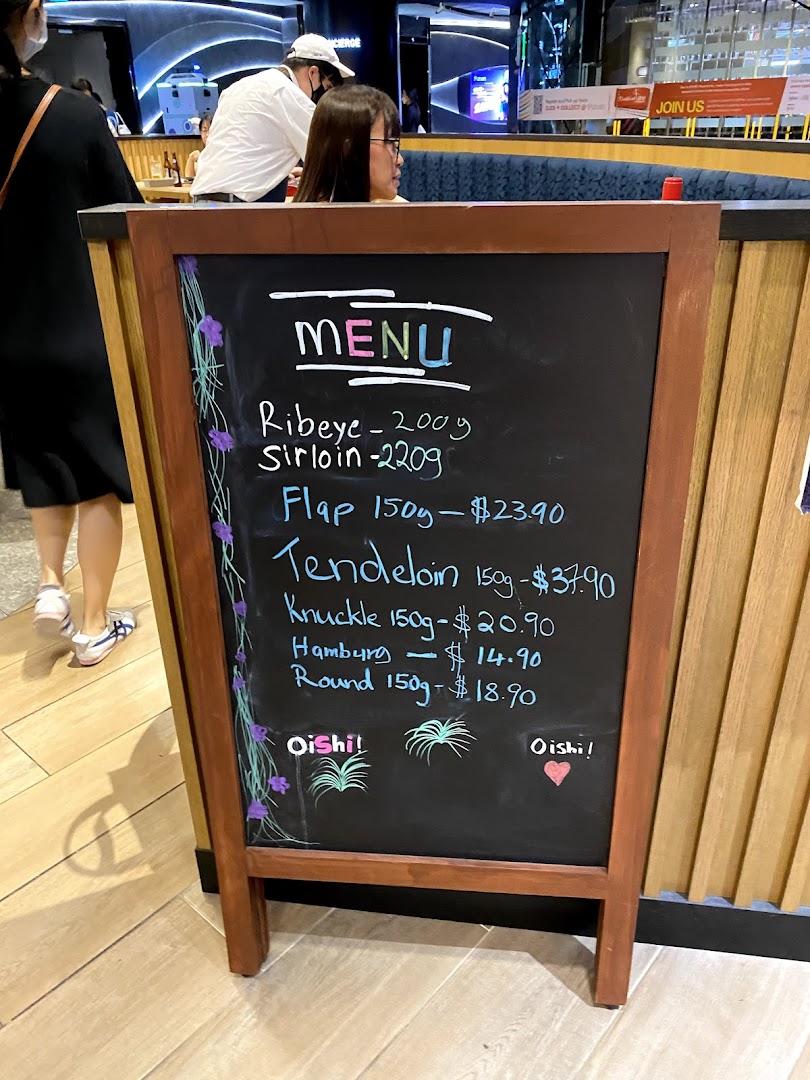 CIERGE
JOIN US
MENU
Ribeye - 200g
Sirloin - 220g
Flap 150g - $23.90
Tendeloin 150g - $37.90
Knuckle 150g - $20.90
Hamburg - $14.90
Round 150g - $18.90
Oishi!
Oishi!